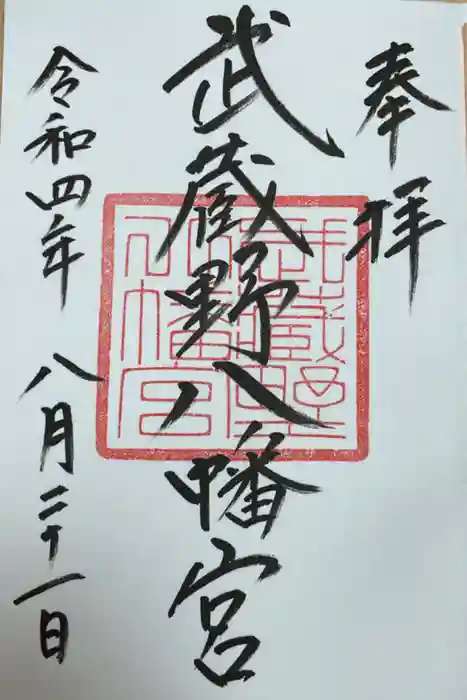 奉拝
武蔵野八幡宮
武蔵野八幡宮
令和四年八月二十一日